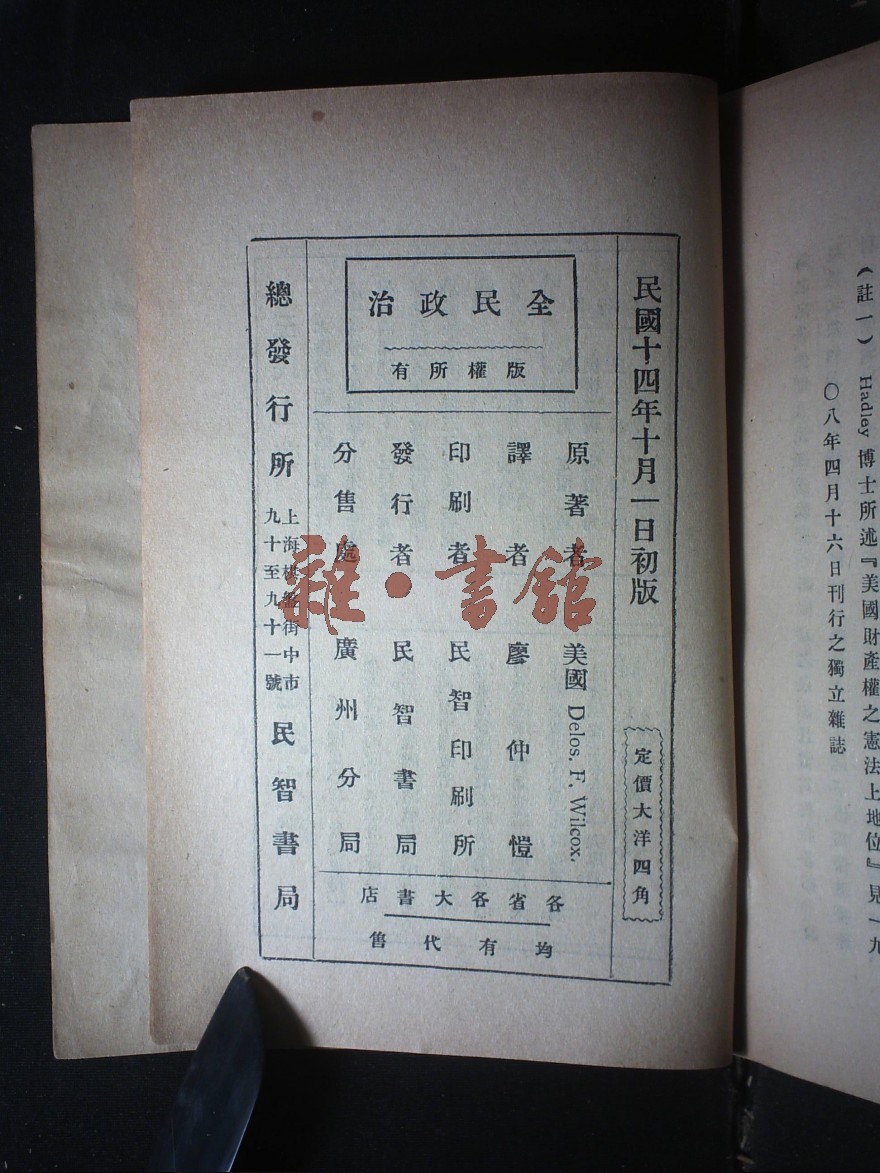 （註一）　Hadley 博士所述『美國財產權之憲法上地位』見一九
〇八年四月十六日刊行之獨立雜誌
民國十四年十月一日初版
定價大洋四角
全民政治
版權所有
原著者　美國 Delos. F. Wilcox.
譯者　廖仲愷
印刷者　民智印刷所
發行者　民智書局
分售處　廣州分局
各省各大書店
均有代售
總發行所　上海棋盤街中市
九十至九十一號
民智書局
雜·書館